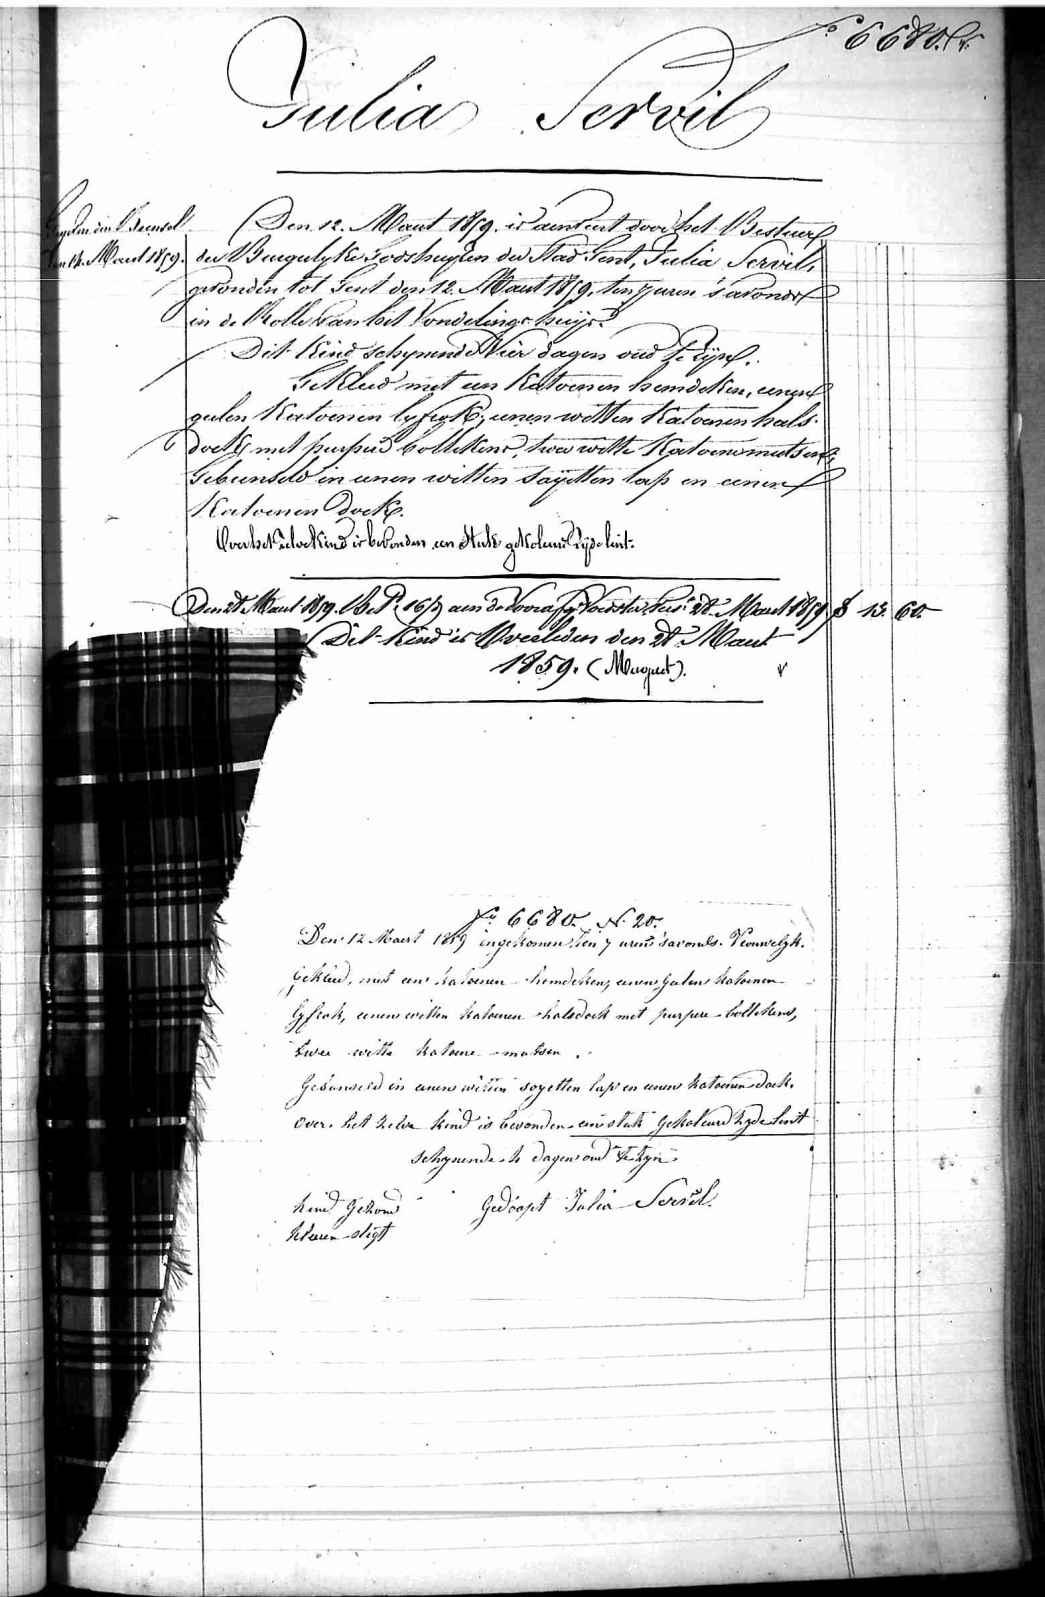 Fo 6680.
Julia Servil
den 14 Maert 1859.
Den 12. Maert 1859. is aenveert door het Bestuer
der Burgelyke Godshuyzen der Stad Gent, Julia Servil,
gevonden tot Gent den 12. Maert 1859, ten 7 uren 's avonds
in de Rolle van het Vondelingshuys.
Dit Kind schynende Vier dagen oud te zyn.
Gekleed met een Katoenen hemdeken, eenen
geelen Katoenen lyfrok, eenen witten Katoenen hals
doek, met purpere bollekens, twee witte Katoene mutsen,
Gebunseld in eenen witten sayetten lap en eenen
Katoenen doek.
Over het zelve Kind is bevonden een Stuk gekoleurd Zyde lint.
Den 28 Maert 1859. Bet. 16/7 aen de Voedster 28. Maert 1859 13. 60.
Dit Kind is Overleden den 28 Maert
1859. (Muguet).
Fo 6680. N. 20.
Den 12 Maert 1859 ingekomen ten 7 uren 's avonds. Vrouwelyk.
Gekleed, met een katoenen hemdeken, eenen geelen katoenen
lyfrok, eenen witten katoenen halsdoek met purpere bollekens,
twee witte katoene mutsen.
Gebunseld in eenen witten sayetten lap en eenen katoenen doek.
over het zelve kind is bevonden een stuk gekoleurd zyde lint
schynende 4 dagen oud te zyn
kind Gezond Gedoopt Julia Servil.
kleeren slegt